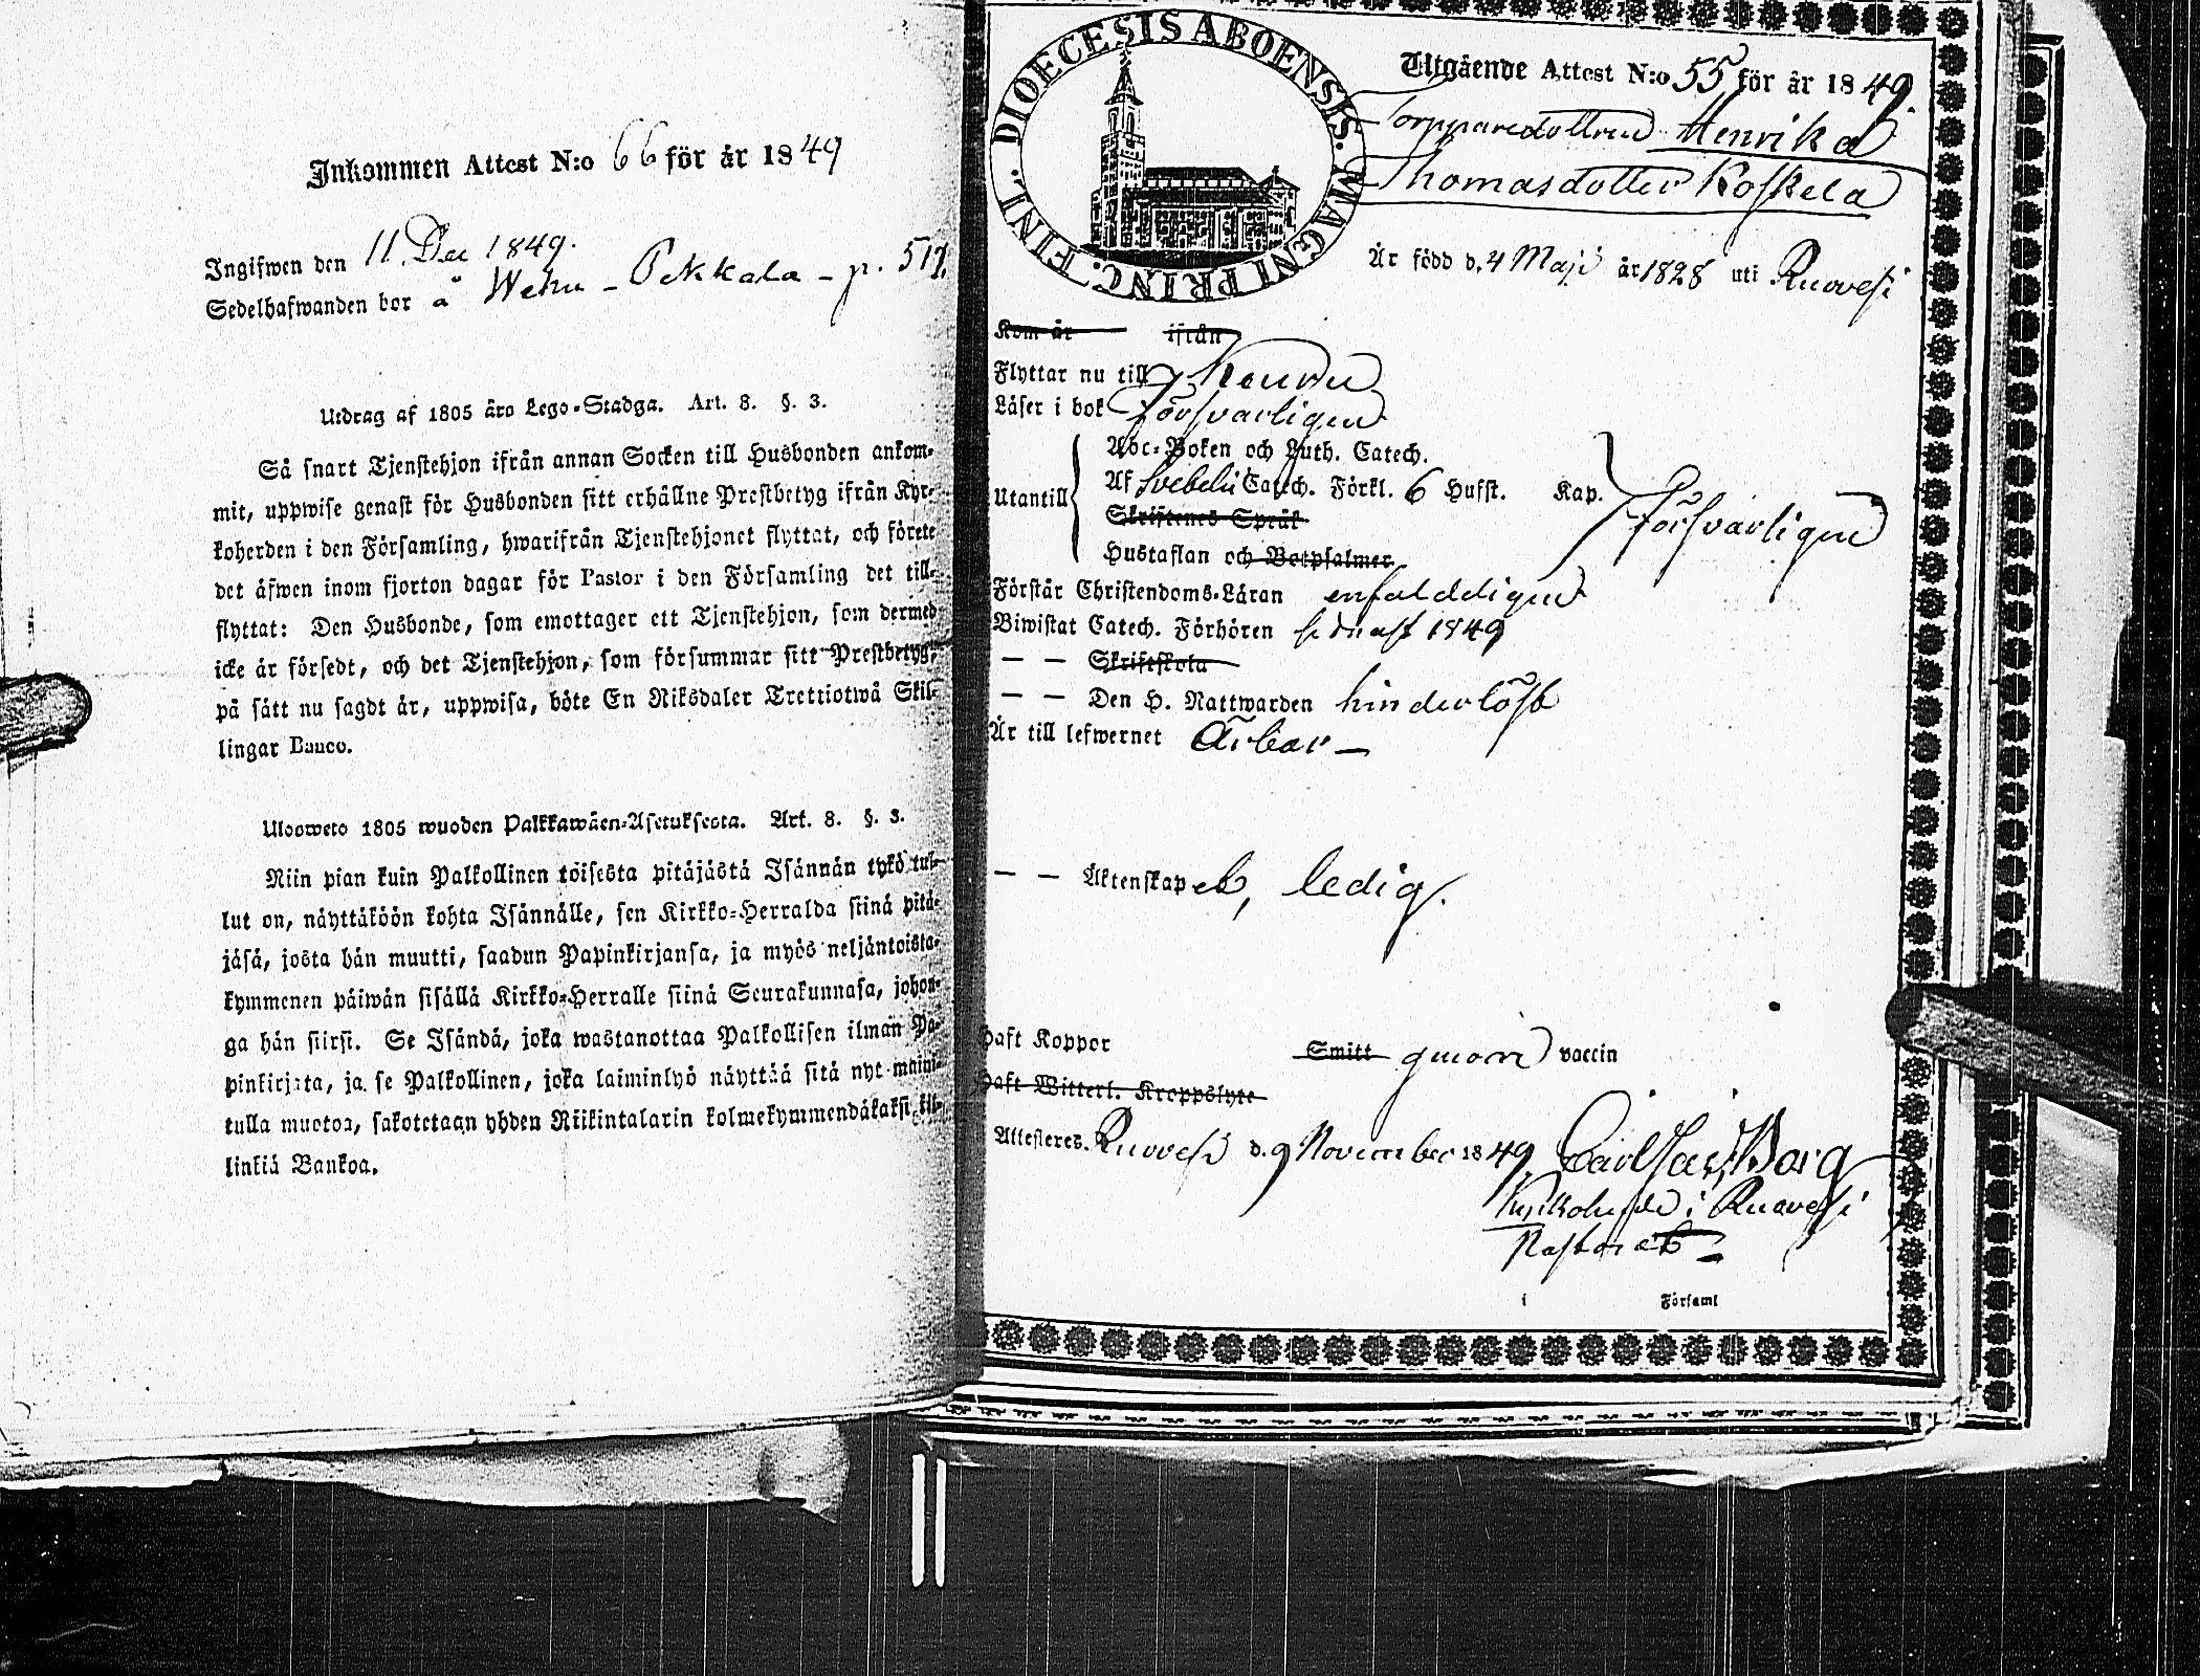 Inkommen Attest N:o 66 för år 1849
Ingifwen den 11 Dec 1849.
Sedelhafwanden bor å Wehu - Pekkala - p. 517.
Utdrag af 1805 års Lego-Stadga. Art. 8. §. 3.
Så snart Tjenstehjon ifrån annan Socken till Husbonden ankom-
mit, uppwise genast för Husbonden sitt erhållne Prestbetyg ifrån Kyr-
koherden i den Församling, hwarifrån Tjenstehjonet flyttat, och förete
det äfwen inom fjorton dagar för Pastor i den Församling det till-
flyttat: Den Husbonde, som emottager ett Tjenstehjon, som dermed
icke är försedt, och det Tjenstehjon, som försummar sitt Prestbetyg,
på sätt nu sagdt är, uppwisa, böte En Riksdaler Trettiotwå Skil-
lingar Banco.
Ulosweto 1805 wuoden Palkkawäen-Asetuksesta. Art. 8. §. 3.
Niin pian kuin Palkollinen töisesta pitäjästä Isännän tykö tul-
lut on, näyttäköön kohta Isännälle, sen Kirkko-Herralda siinä pitä-
jäsä, josta hän muutti, saadun Papinkirjansa, ja myös neljäntoista-
kymmenen päiwän sisällä Kirkko-Herralle siinä Seurakunnasa, johon-
ga hän siirsi. Se Isändä, joka wastanottaa Palkollisen ilman Pa-
pinkirjata, ja se Palkollinen, joka laiminlyö näyttää sitä nyt maini-
tulla muotoa, sakotetaan yhden Riikintalarin kolmekymmendäkaksi kil-
linkiä Bankoa.
DIOECESIS ABOENSIS. MAGNI PRINC. FINL.
Utgående Attest N:o 55 för år 1849.
Torpparedottren Henrika
Thomasdotter Koskela
Är född d. 4 Maji år 1828 uti Ruovesi
Kom år ifrån
Flyttar nu till Keuru
Läser i bok försvarligen
Abc-Boken och Luth. Catech.
Utantill Af Svebelii Catech. Förkl. 6 Hufst. Kap. försvarligen
Skriftenes Språk
Hustaflan och Botpsalmer
Förstår Christendoms-Läran enfaldeligen
Biwistat Catech. Förhören sednast 1849
— — Skriftskola
— — Den H. Nattwarden hinderlöst
Är till lefwernet Ärbar -
— — Äktenskap eb, ledig.
Haft Koppor Smitt genom vaccin
Haft Witterl. Kroppslyte
Attesteres. Ruovesi d. 9 November 1849. Carl Borg
Kyrkoherde i Ruovesi
Pastorat
i Församl